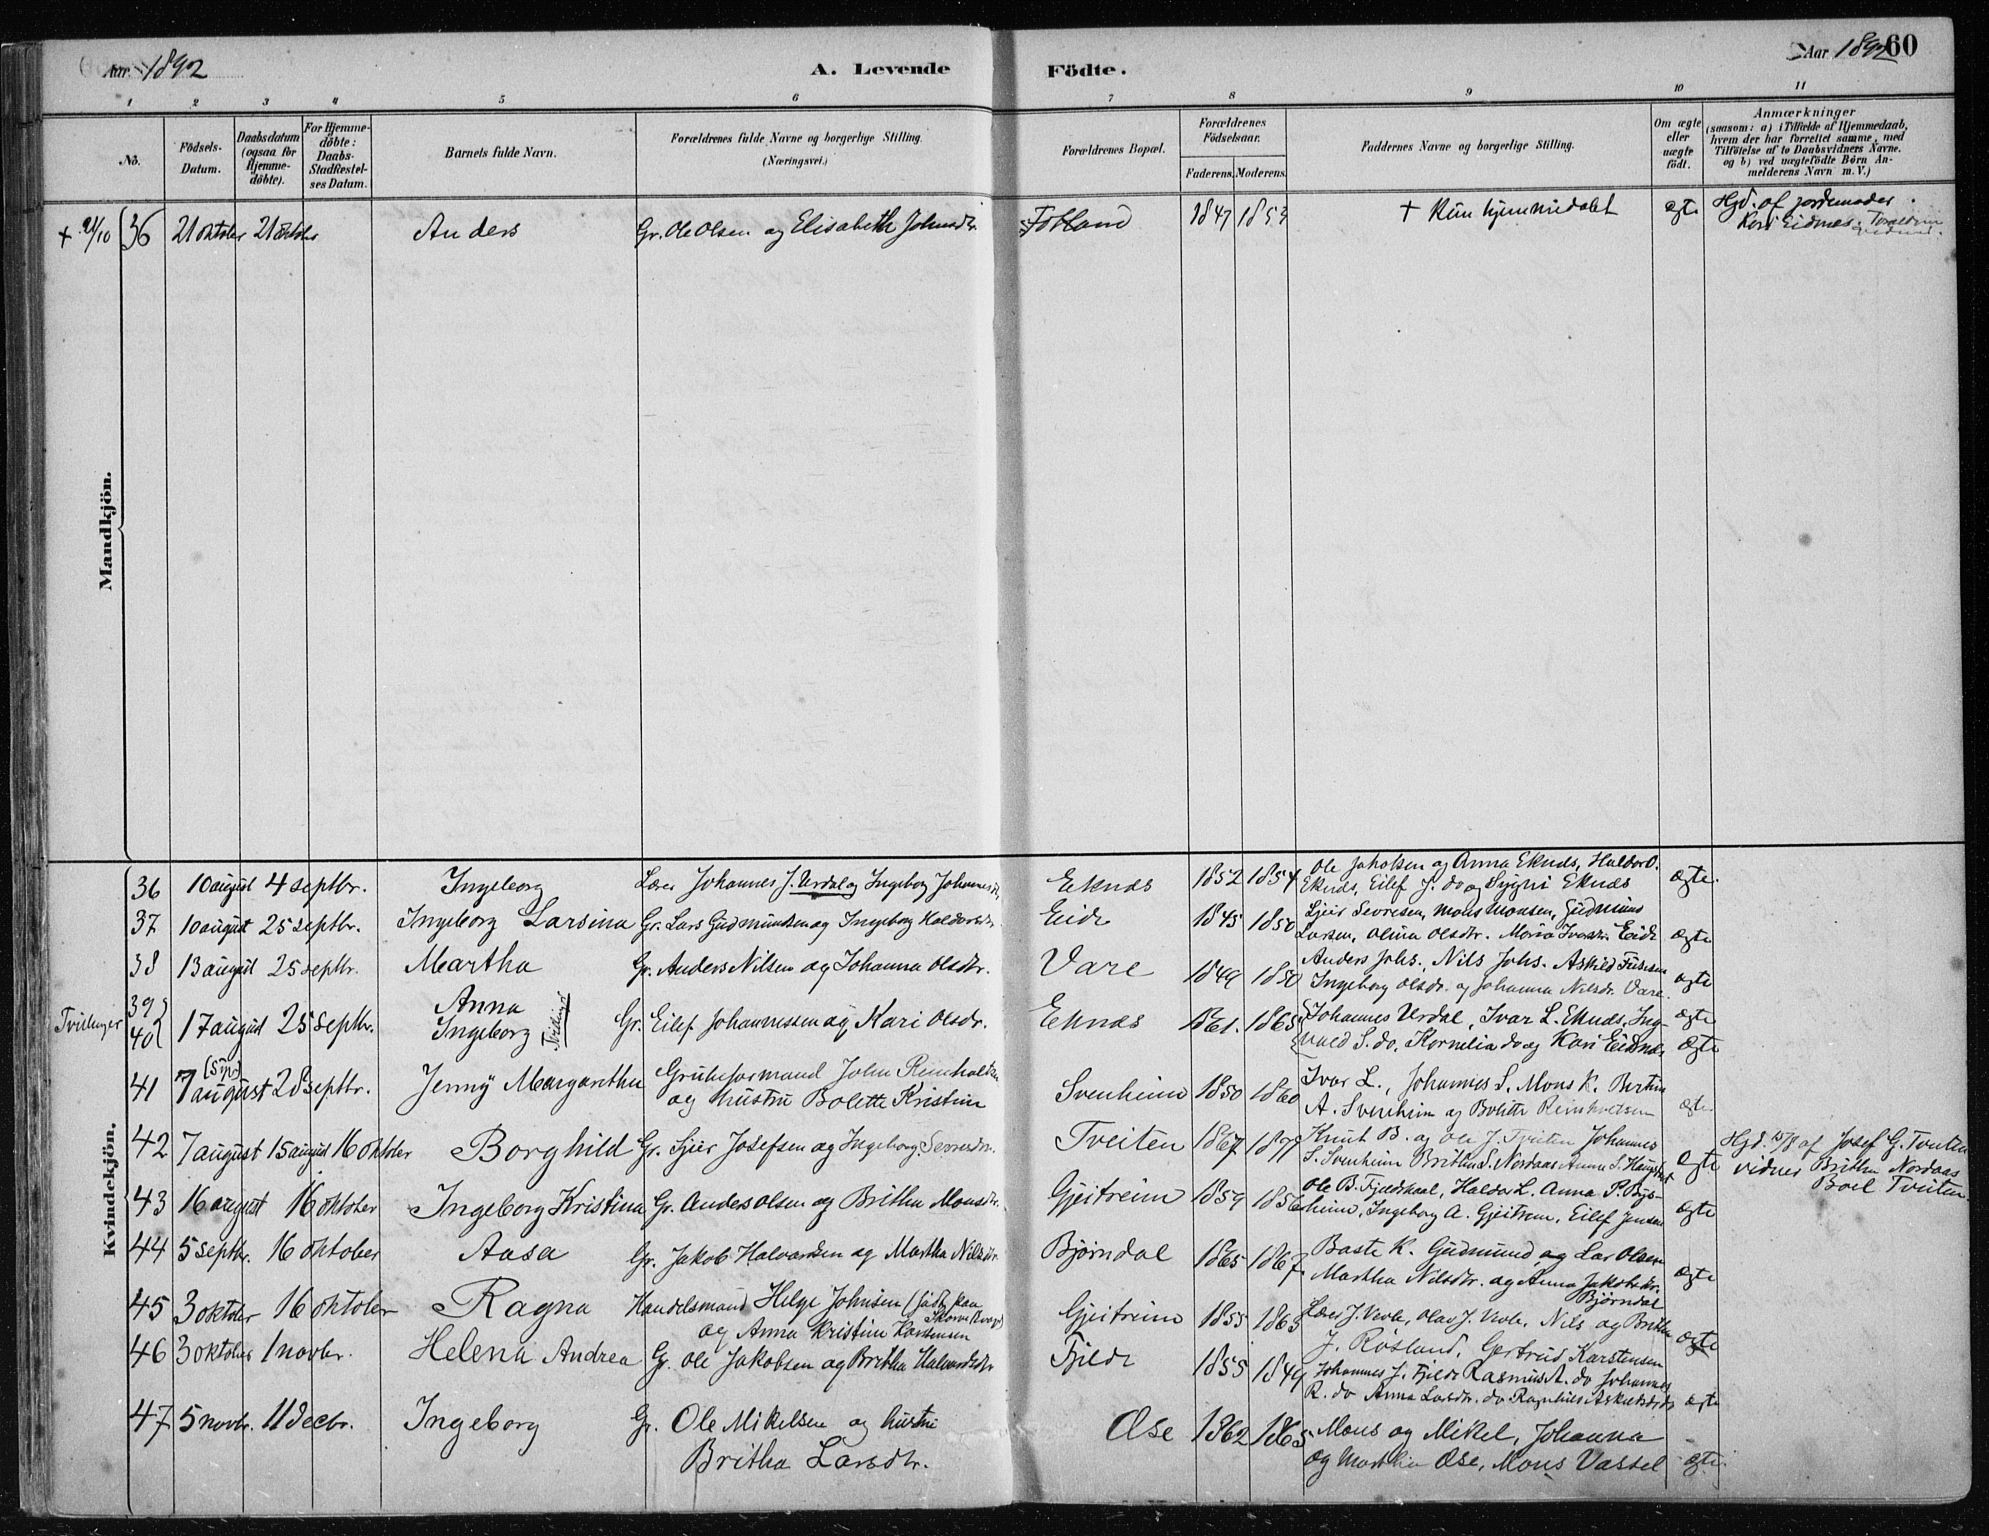 Aar 1892
A. Levende Fødte.
Aar 1892 60
1 2 3 4 5 6 7 8 9 10 11
No.
Fødsels-Datum.
Daabsdatum (ogsaa for Hjemme-døbte).
For Hjemme-døbte: Daabs-Stadfæstel-ses Datum.
Barnets fulde Navn.
Forældrenes fulde Navne og borgerlige Stilling. (Næringsvei.)
Forældrenes Bopæl.
Forældrenes Fødselsaar.
Faderens. Moderens.
Faddernes Navne og borgerlige Stilling.
Om ægte eller uægte født.
Anmærkninger
(saasom: a) i Tilfælde af Hjemmedaab, hvem der har forrettet samme, med Tilføielse af to Daabsvidners Navne, og b) ved uægtefødte Børn Anmelderens Navn m. V.)
Mandkjön.
+ 21/10 36 21 oktober 21 oktober Anders Gr. Ole Olsen og Elisabeth Johnsdtr. Fosland 1847 1853 + Kun hjemmedøbt ægte Hjd. af jordemoder
Kari Eidnes.
Kvindekjön.
36 10 august 4 septbr. Ingeborg Lærer Johannes J. Urdal og Ingeborg Johannesdtr. Eknes 1852 1854 Ole Jakobsen og Anna Eknes, Haldor O.
Eknes, Eilef J. do og Sygni Eknes ægte.
37 10 august 25 septbr. Ingeborg Larsina Gr. Lars Gudmundsen og Ingeborg Haldorsdtr. Eide 1845 1850 Sjur Sevresen, Mons Monsen, Gudmund
Larsen, Olina Olsdtr. Maria Ivarsdtr. Eide ægte
38 13 august 25 septbr. Martha Gr. Anders Nilsen og Johanna Olsdtr. Vare 1849 1850 Anders Johs., Nils Johs. Askild
Ingeborg Olsdr. og Johanna Nilsdr. Vare. ægte
Tvillinger 39 Anna Tvillinger
40 17 august 25 septbr. Ingeborg Gr. Eilef Johannessen og Kari Olsdr. Eknes 1861. 1865 Johannes Urdal, Ivar L. Eknes, Ing- ægte
vald S. do, Kornelia do og Kari Eidsnes ægte
41 7 august 28 septbr. Jenny Margaretha Grubeformand John Reinholtsen
og hustru Bolette Kristine Svenheim 1850 1860 Ivar L., Johannes S. Mons K. Bertha
A. Svenheim og Bolette Reinholtsen ægte
42 7 august 15 august 16 oktober Borghild Gr. Sjur Josefsen og Ingeborg Sevresdtr. Tveiten 1867 Knut B. og Ole J. Tveiten Johannes
S. Svenheim Britha S. Nordaas Anna S. ægte Hjd. 15/8 af Josef G. Tveiten
vidner Britha Nordaas
Boel Tveiten
43 16 august 16 oktober Ingeborg Kristina Gr. Anders Olsen og Britha Monsdtr. Gjeitreim 1859 1856 Ole B. Fjeldskaal, Haldor L. Anna P. Bys-
heim, Ingeborg A. Gjeitreim, Eilef Jensen ægte
44 5 septbr. 16 oktober Aasa Gr. Jakob Halvorsen og Martha Nilsdtr. Bjørndal 1865 1867 Baste K. Gudmund og Lars Olsen
Martha Nilsdtr. og Anna Jakobsdtr.
Bjørndal ægte
45 3 oktober 16 oktober Ragna Handelsmand Helge Johnsen
og Anna Kristine Karstensen Gjeitreim 1855 1863 Nils og Britha
J. Røsland, Gertrud Karstensen ægte
46 3 oktober 1 novbr. Helena Andrea Gr. Ole Jakobsen og Britha Halvorsdtr. Fjelde 1855 1849 Johannes J. Fjelde Rasmus A. do Johannes
R. do Anna Larsdtr. do Ragnhild ægte
47 5 novbr. 11 decbr. Ingeborg Gr. Ole Mikelsen og hustru
Britha Larsdtr. Øse 1862 1865 Mons og Mikel, Johanna
og Martha Øse, Mons Vassel ægte